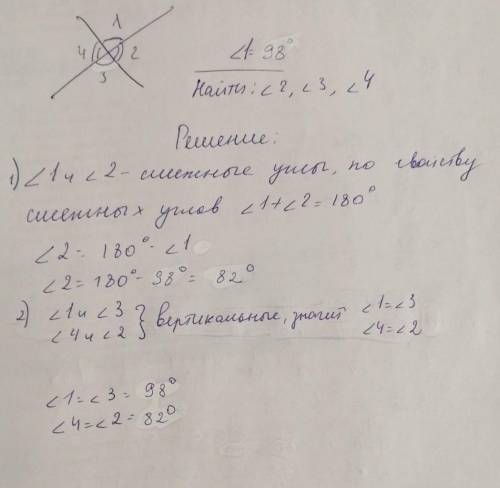 1
4 2
3
∠1 = 98°
Найти: ∠2, ∠3, ∠4
Решение:
1) ∠1 и ∠2 - смежные углы, по свойству
смежных углов ∠1+∠2=180°
∠2 = 180° - ∠1
∠2 = 180° - 98° = 82°
2) ∠1 и ∠3 } вертикальные, значит ∠1=∠3
∠4 и ∠2 ∠4=∠2
∠1=∠3= 98°
∠4=∠2= 82°